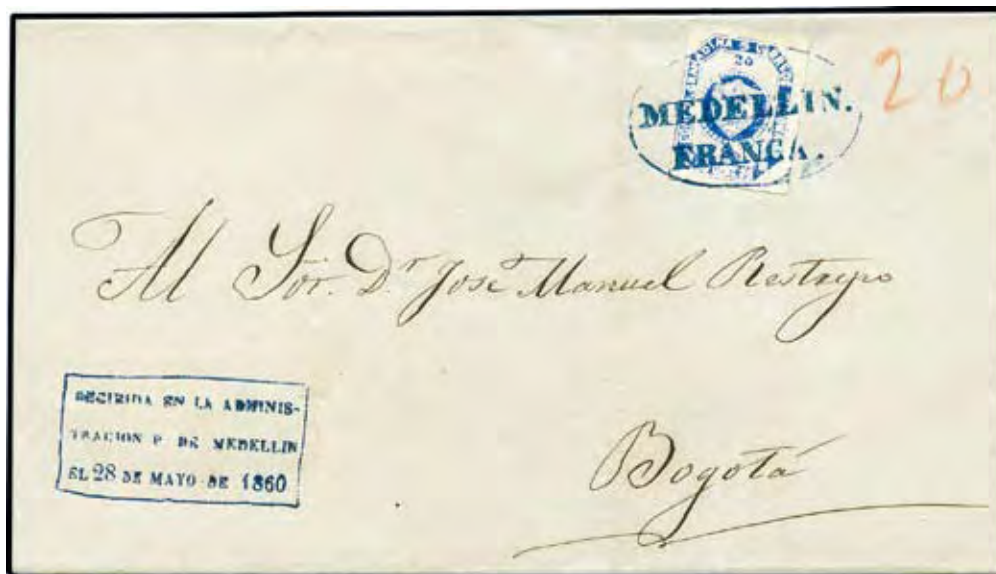 20
MEDELLIN.
FRANCA.
20
Al Sor. Dr José Manuel Restrepo
Bogotá
RECIBIDA EN LA ADMINIS-
TRACION P DE MEDELLIN
EL 28 DE MAYO DE 1860